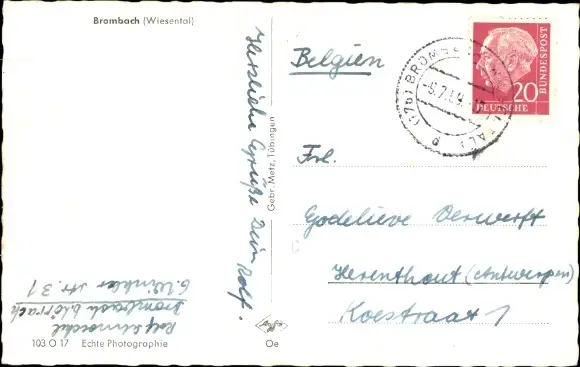 Brombach (Wiesental)
Herzliche Grüße Dein Rolf.
Gebr. Metz, Tübingen
Belgien
(17b) BROMBACH
-6.7.59.
P
20
DEUTSCHE
BUNDESPOST
Frl.
Godelieve Verwerft
Herenthout (Antwerpen)
Koestraat 1
Rolf
Brombach b/Lörrach
str 31
103 O 17 Echte Photographie
Agfa
Oe